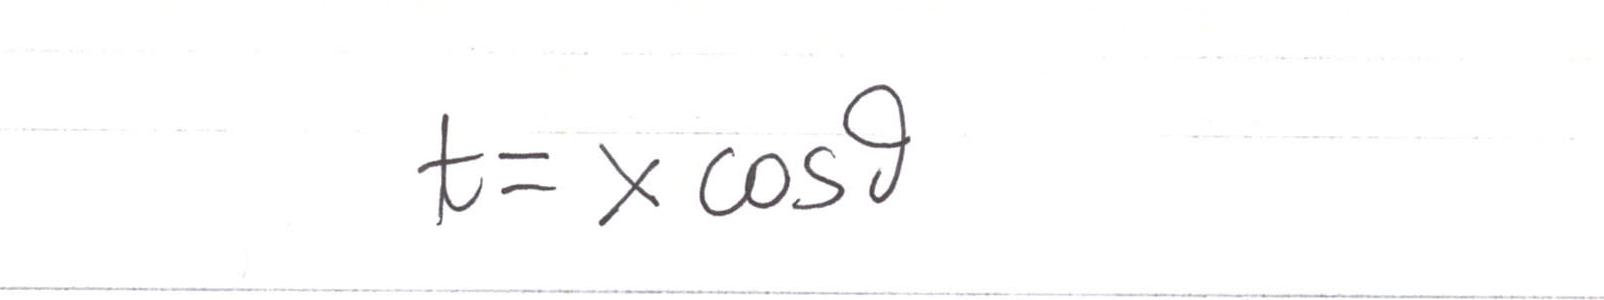 t = x cos ϑ